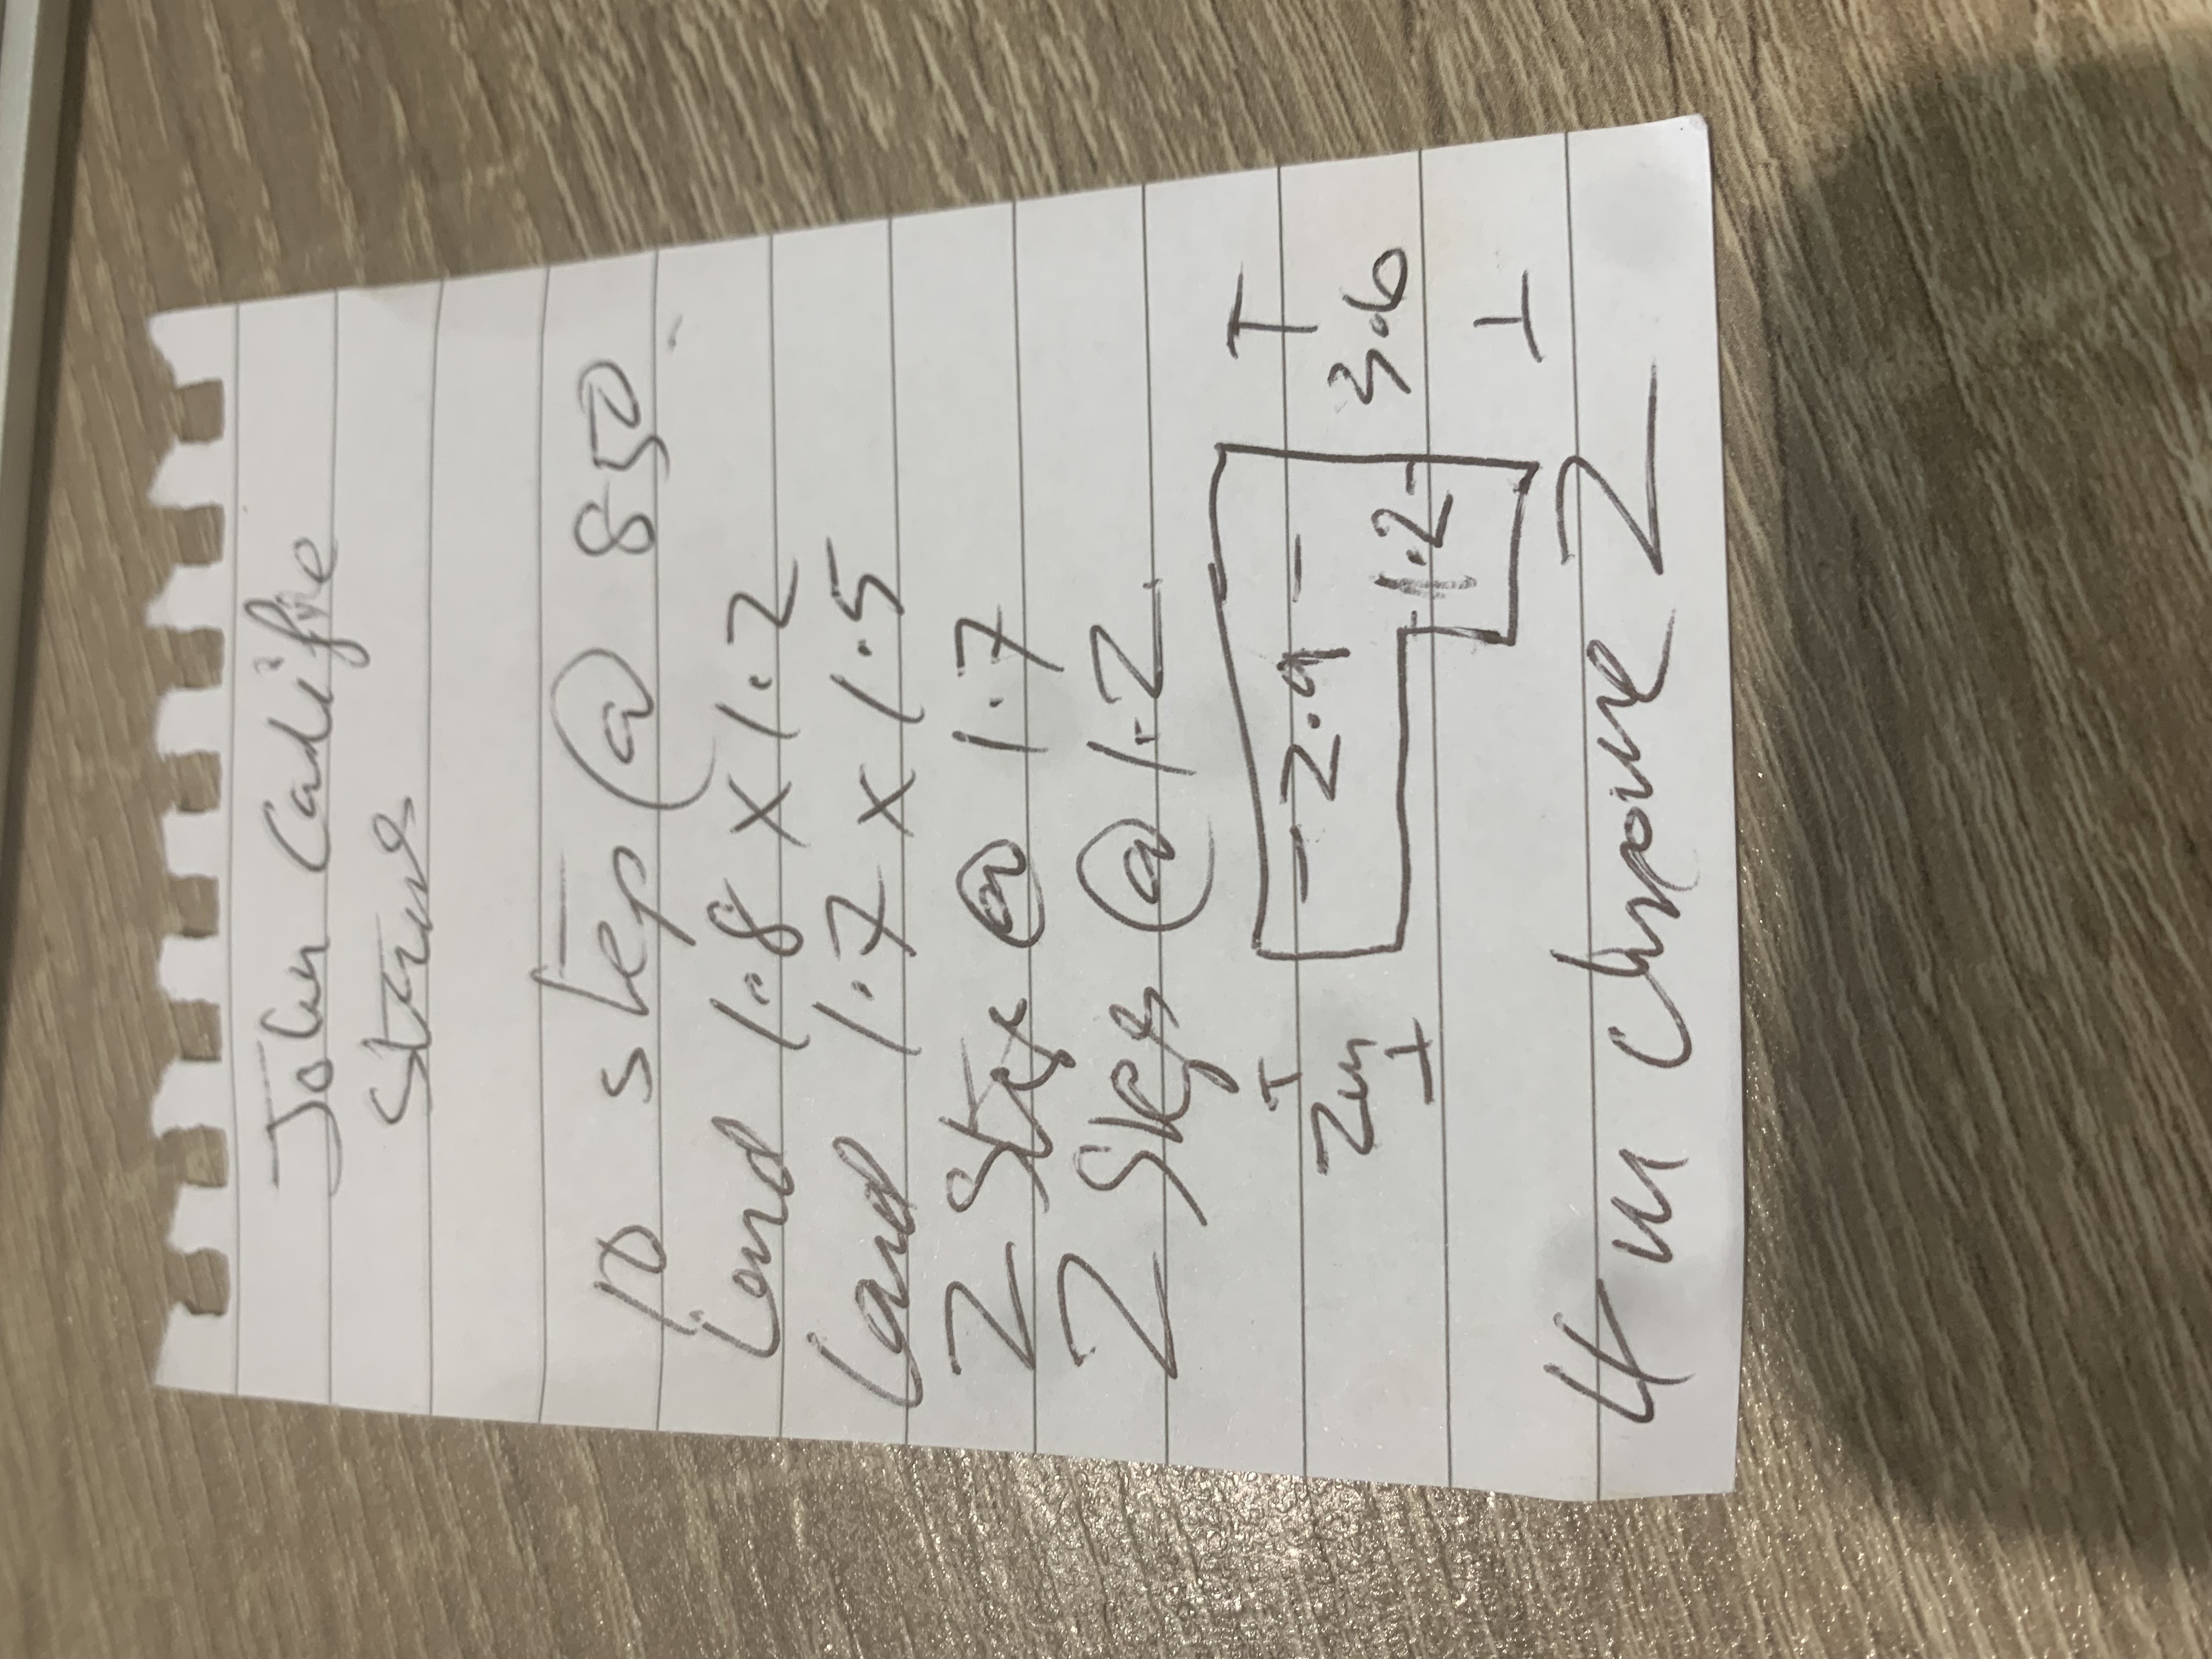 John Cadife
Stairs
10 step @ 850
Land 1.8 x 1.2
Land 1.7 x 1.5
2 Steps @ 1.7
2 Steps @ 1.2
2.9
3.6
2m
1.2
4 m chrome 2